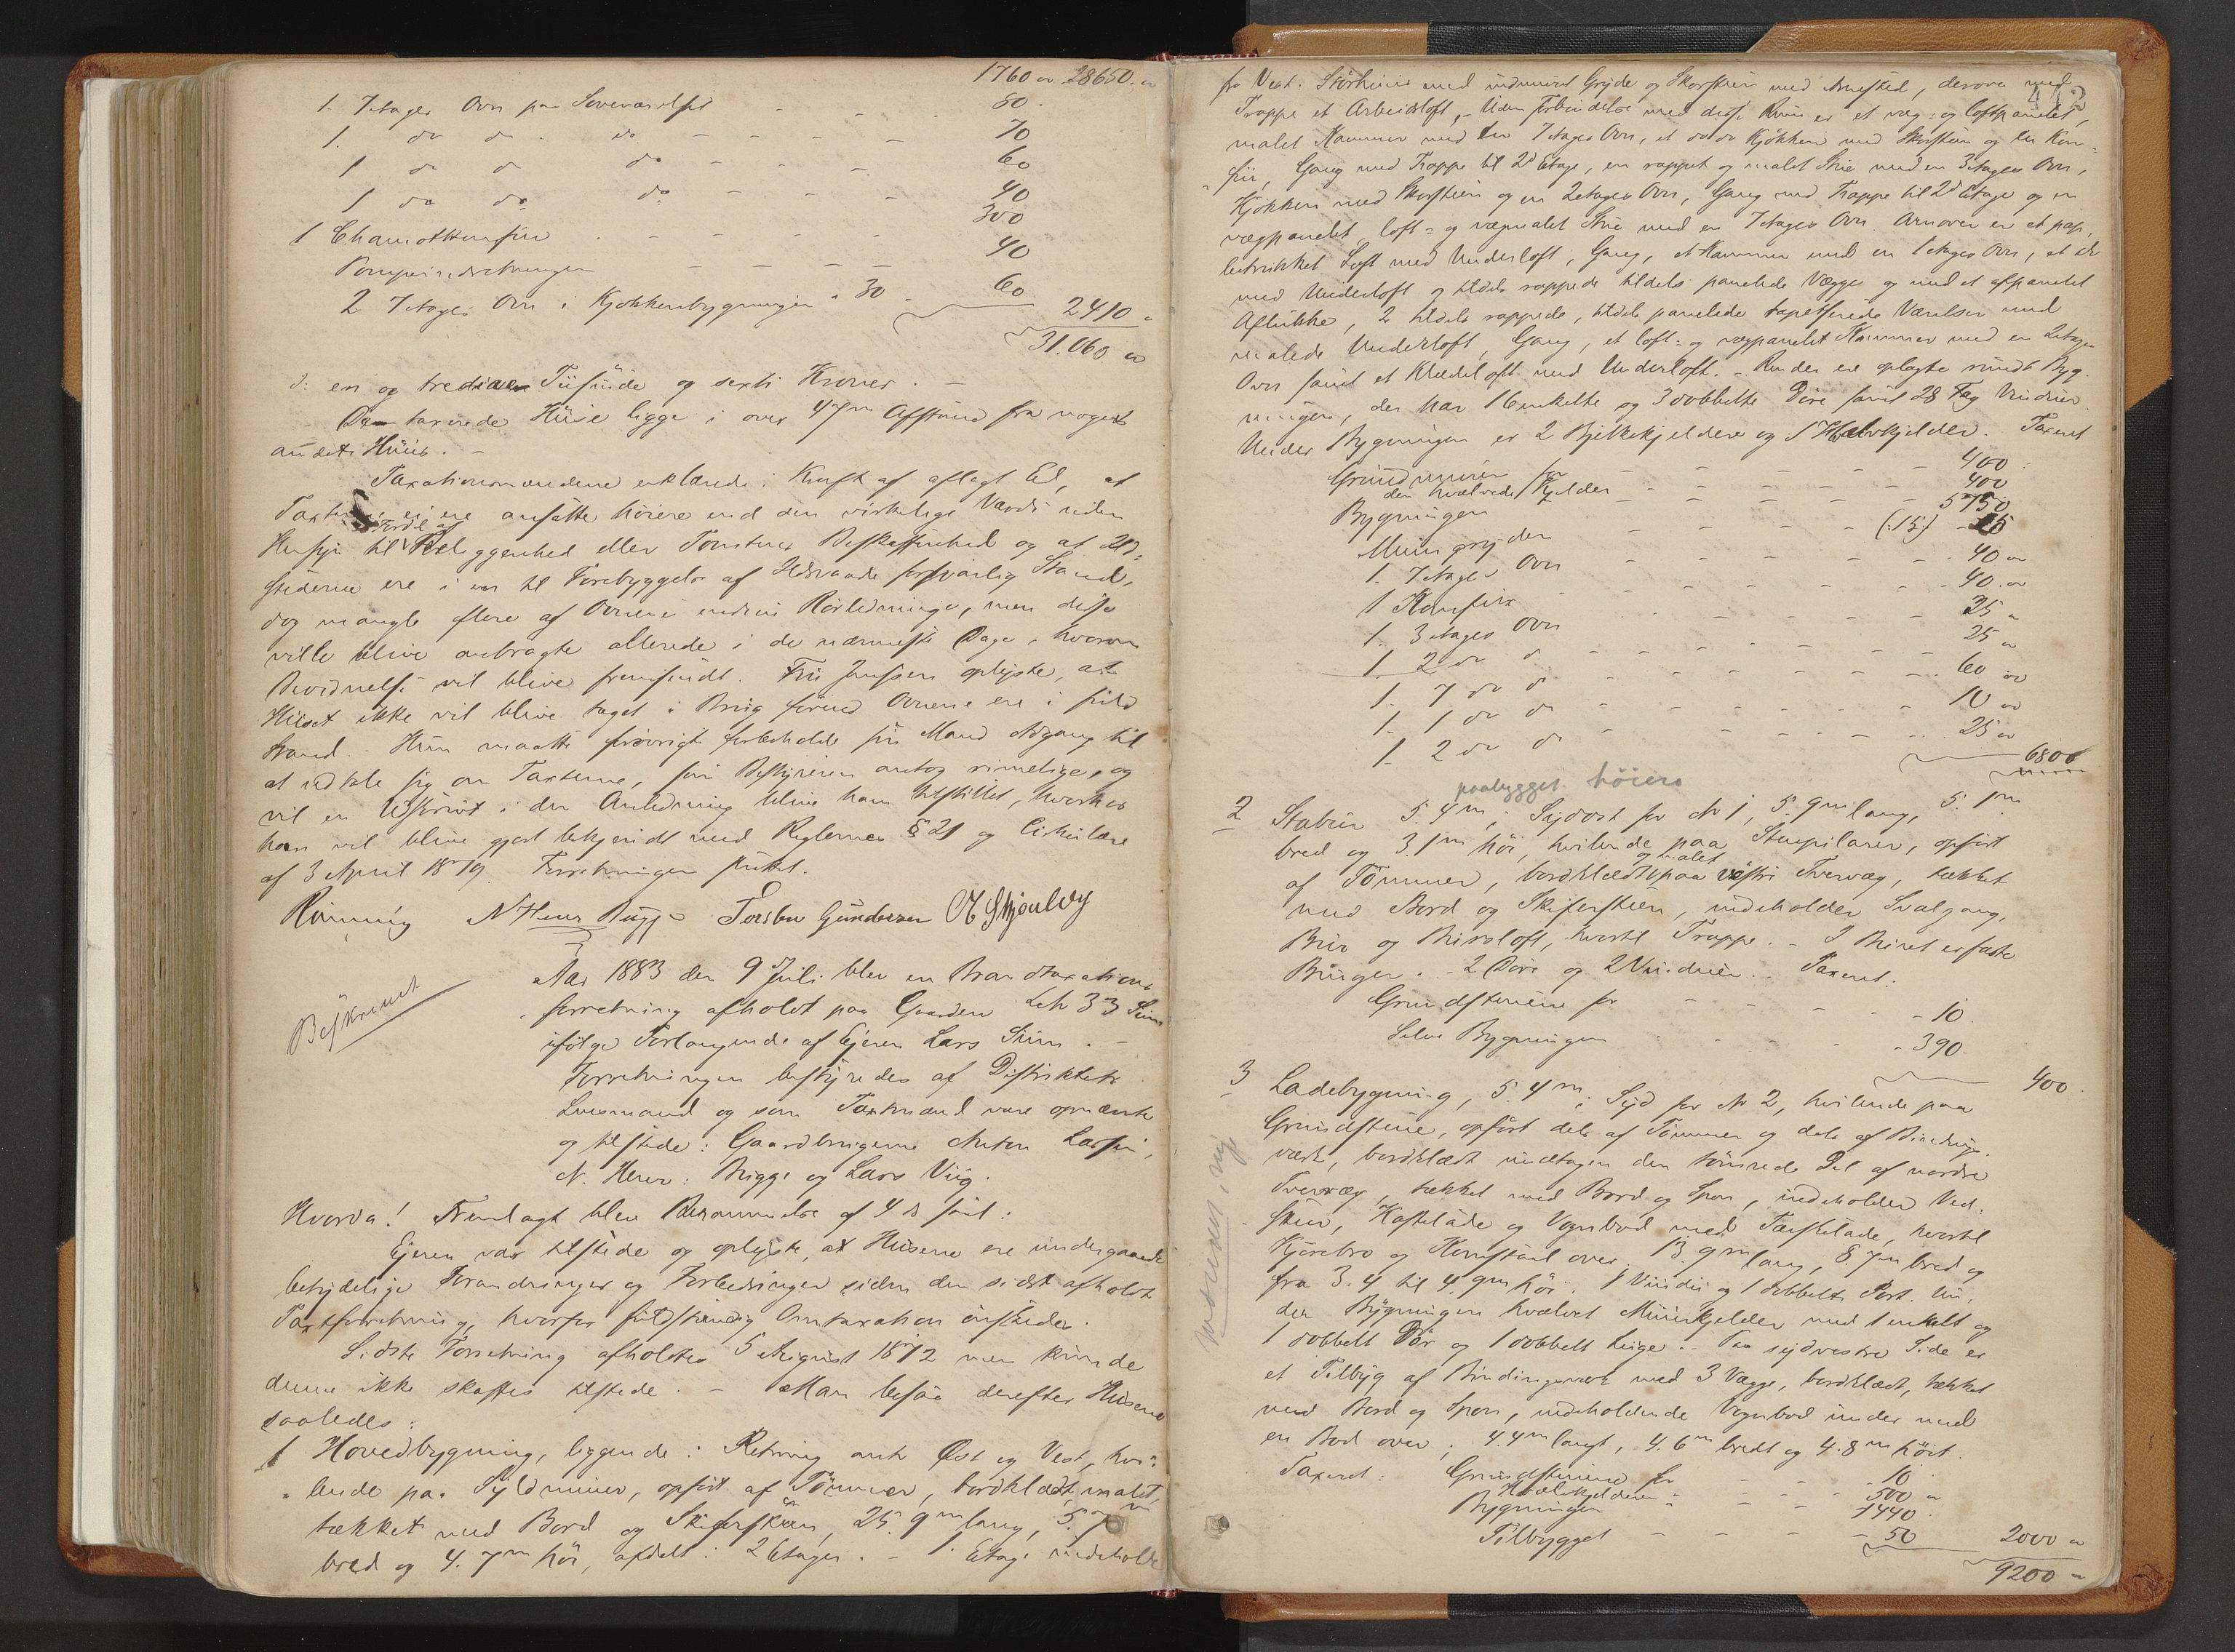 1760 „ 28650. „
1. 7etages Ovn paa Soveværelset - - 80.
1. do do do - - - - 70
1 do do do - - - - 60
1 do do do - - - - 40
300
1 Chamottkomfur - - - - 40
Pompeindretningen - - - -
2 7etages Ovn i Kjøkkenbygningen à 30 - 60
2410 „
31.060 „
d: en og tredive Tusinde og sexti Kroner. -
De taxerede Huse ligge i over 47m Afstand fra noget
andet Huus. -
Taxationsmændene erklærede i Kraft af aflagt Ed, at
Taxterne ei ere ansatte høiere end den virkelige Værdi uden
Hensyn til Fordel af Beliggenhed eller Tomtens Beskaffenhed og at Ild-
stederne ere i en til Forebyggelse af Ildsvaade forsvarlig Stand,
dog mangle flere af Ovnene endnu Rørledninge, men disse
ville blive anbragte allerede i de nærmeste Dage, hvorom
Bevidnelse vil blive fremsendt. Fru Jenssen oplyste, at
Huset ikke vil blive taget i Brug førend Ovnene ere i fuld
Stand. Hun maatte forøvrigt forbeholde sin Mand Adgang til
at udtale sig om Taxterne, som Bestyreren antog rimelige, og
vil en Udskrivt i den Anledning blive ham tilstillet, hvorhos
han vil blive gjort bekjendt med Reglernes § 21 og Cirkulære
af 3 April 1879. Forretningen sluttet.
Rønning N Heur Bugge Torsten Gundersen O Skjoulvy
Beskrevet
Aar 1883 den 9 Juli blev en Brandtaxations
forretning afholdt paa Gaarden Leb 33 Sein
ifølge Forlangende af Ejeren Lars Sein. -
Forretningen bestyredes af Distriktets
Lensmand og som Taxtmænd vare opnævnte
og tilstede: Gaardbrugerne Anton Larsen,
N. Heur: Bugge og Lars Viig.
Hvorda! Fremlagt blev Berammelse af 4 ds saal:
Ejeren var tilstede og oplyste, at Husene ere undergaaede
betydelige Forandringer og Forbedringer siden den sidst afholdt
Taxtforretning, hvorfor fuldstændig Omtaxation ønskedes.
Sidste Forretning afholdtes 5 August 1872 men kunde
denne ikke skaffes tilstede. - Man besaa derefter Husene
saaledes:
1 Hovedbygning, liggende i Retning omtr Øst og Vest, hvi-
lende paa Syldmuur, opført af Tømmer, bordklædt, malet,
tækket med Bord og Skifersteen, 25.9m lang, 5.7m
bred og 4.7m høi, afdelt i 2 Etager. - 1 Etage indeholder
442
fra Vest: Størhuus med indmuret Gryde og Skorsteen med Arnested, derover med
Trappe et Arbeidsloft, - Uden Forbindelse med disse Rum er et væg- og loftpanelet,
malet Kammer med en 7etages Ovn, et do do Kjøkken med Skorsteen og en Kom-
fur, Gang med Trappe til 2d Etage, en rappet og malet Stue med en 3etages Ovn,
Kjøkken med Skorsteen og en 2etages Ovn, Gang med Trappe til 2d Etage og en
vægpanelet, loft- og vægmalet Stue med en 7etages Ovn. Ovnover er et pap-
betrukket Loft med Underloft, Gang, et Kammer med en 1etages Ovn, et do
med Underloft og tildels rappede tildels panelede Vægge og med et afpanelet
Aflukke, 2 tildels rappede, tildels panelede tapetserede Værelser med
malede Underloft, Gang, et loft- og vægpanelet Kammer med en 2etages
Ovn samt et Klædeloft med Underloft. - Render ere oplagte rundt Byg-
ningen, der har 16 enkelte og 3 dobbelte Døre samt 28 Fag Vinduer.
Under Bygningen er 2 Bjelkekjeldere og 1 Hvælvkjelder. Taxeret
Grundmuren for - - - - - 400
den hvælvede Kjelder - - - - 400
Bygningen - - - - 5750
Muurgryden - - - - (:15:) - 25
1. 7etages Ovn - - - - 40 „
1 Komfur - - - - 40. „
1. 3etages Ovn - - - - 25 „
1 2 do do - - - - 25 „
1. 7 do do - - - - 60 „
1. 1 do do - - - - 10 „
1. 2 do do - - - - 25 „
6800
paabygget høiere
2 Stabur 5.4m, Sydost for Nr 1, 5.9m lang, 5.1m
bred og 3.1m høi, hvilende paa Steenpilarer, opført
af Tømmer, bordklædt og malet paa vestre Tvervæg, tækket
med Bord og Skifersteen, indeholder Svalgang,
Bur og Bursloft, hvortil Trappe. - I Buret er faste
Binger. - 2 Døre og 2 Vinduer. - Taxeret:
Grundstenene for - - - - 10.
Selve Bygningen - - - - 390.
400
3 Ladebygning, 5.4m, Syd for Nr 2, hvilende paa
Grundstene, opført dels af Tømmer og dels af Bindings-
værk, bordklædt undtagen den tømrede Del af nordre
Tvervæg, tækket med Bord og Spon, indeholder Ved-
skur, Høstelade og Vognbod med Tærskelade, hvortil
Kjørebro og Kornstaal over, 13.9m lang, 8.7m bred og
fra 3.4 til 4.9m høi. 1 Vindu og 1 dobbelt Port. Un-
der Bygningen hvælvet Muurkjelder med 1 enkelt og
1 dobbelt Dør og 1 dobbelt Luge. - Paa sydvestre Side er
et Tilbyg af Bindingsværk med 3 Vægge, bordklædt, tækket
med Bord og Spon, indeholdende Vognbod under med
en Bod over, 4.4m langt, 4.6m bredt og 4.8m høit.
Taxeret: Grundstenene for - - - 10
Hvælvkjelderen - - - 500 „
Bygningen - - - 1440.
Tilbygget - - - 50 2000 „
9200 „